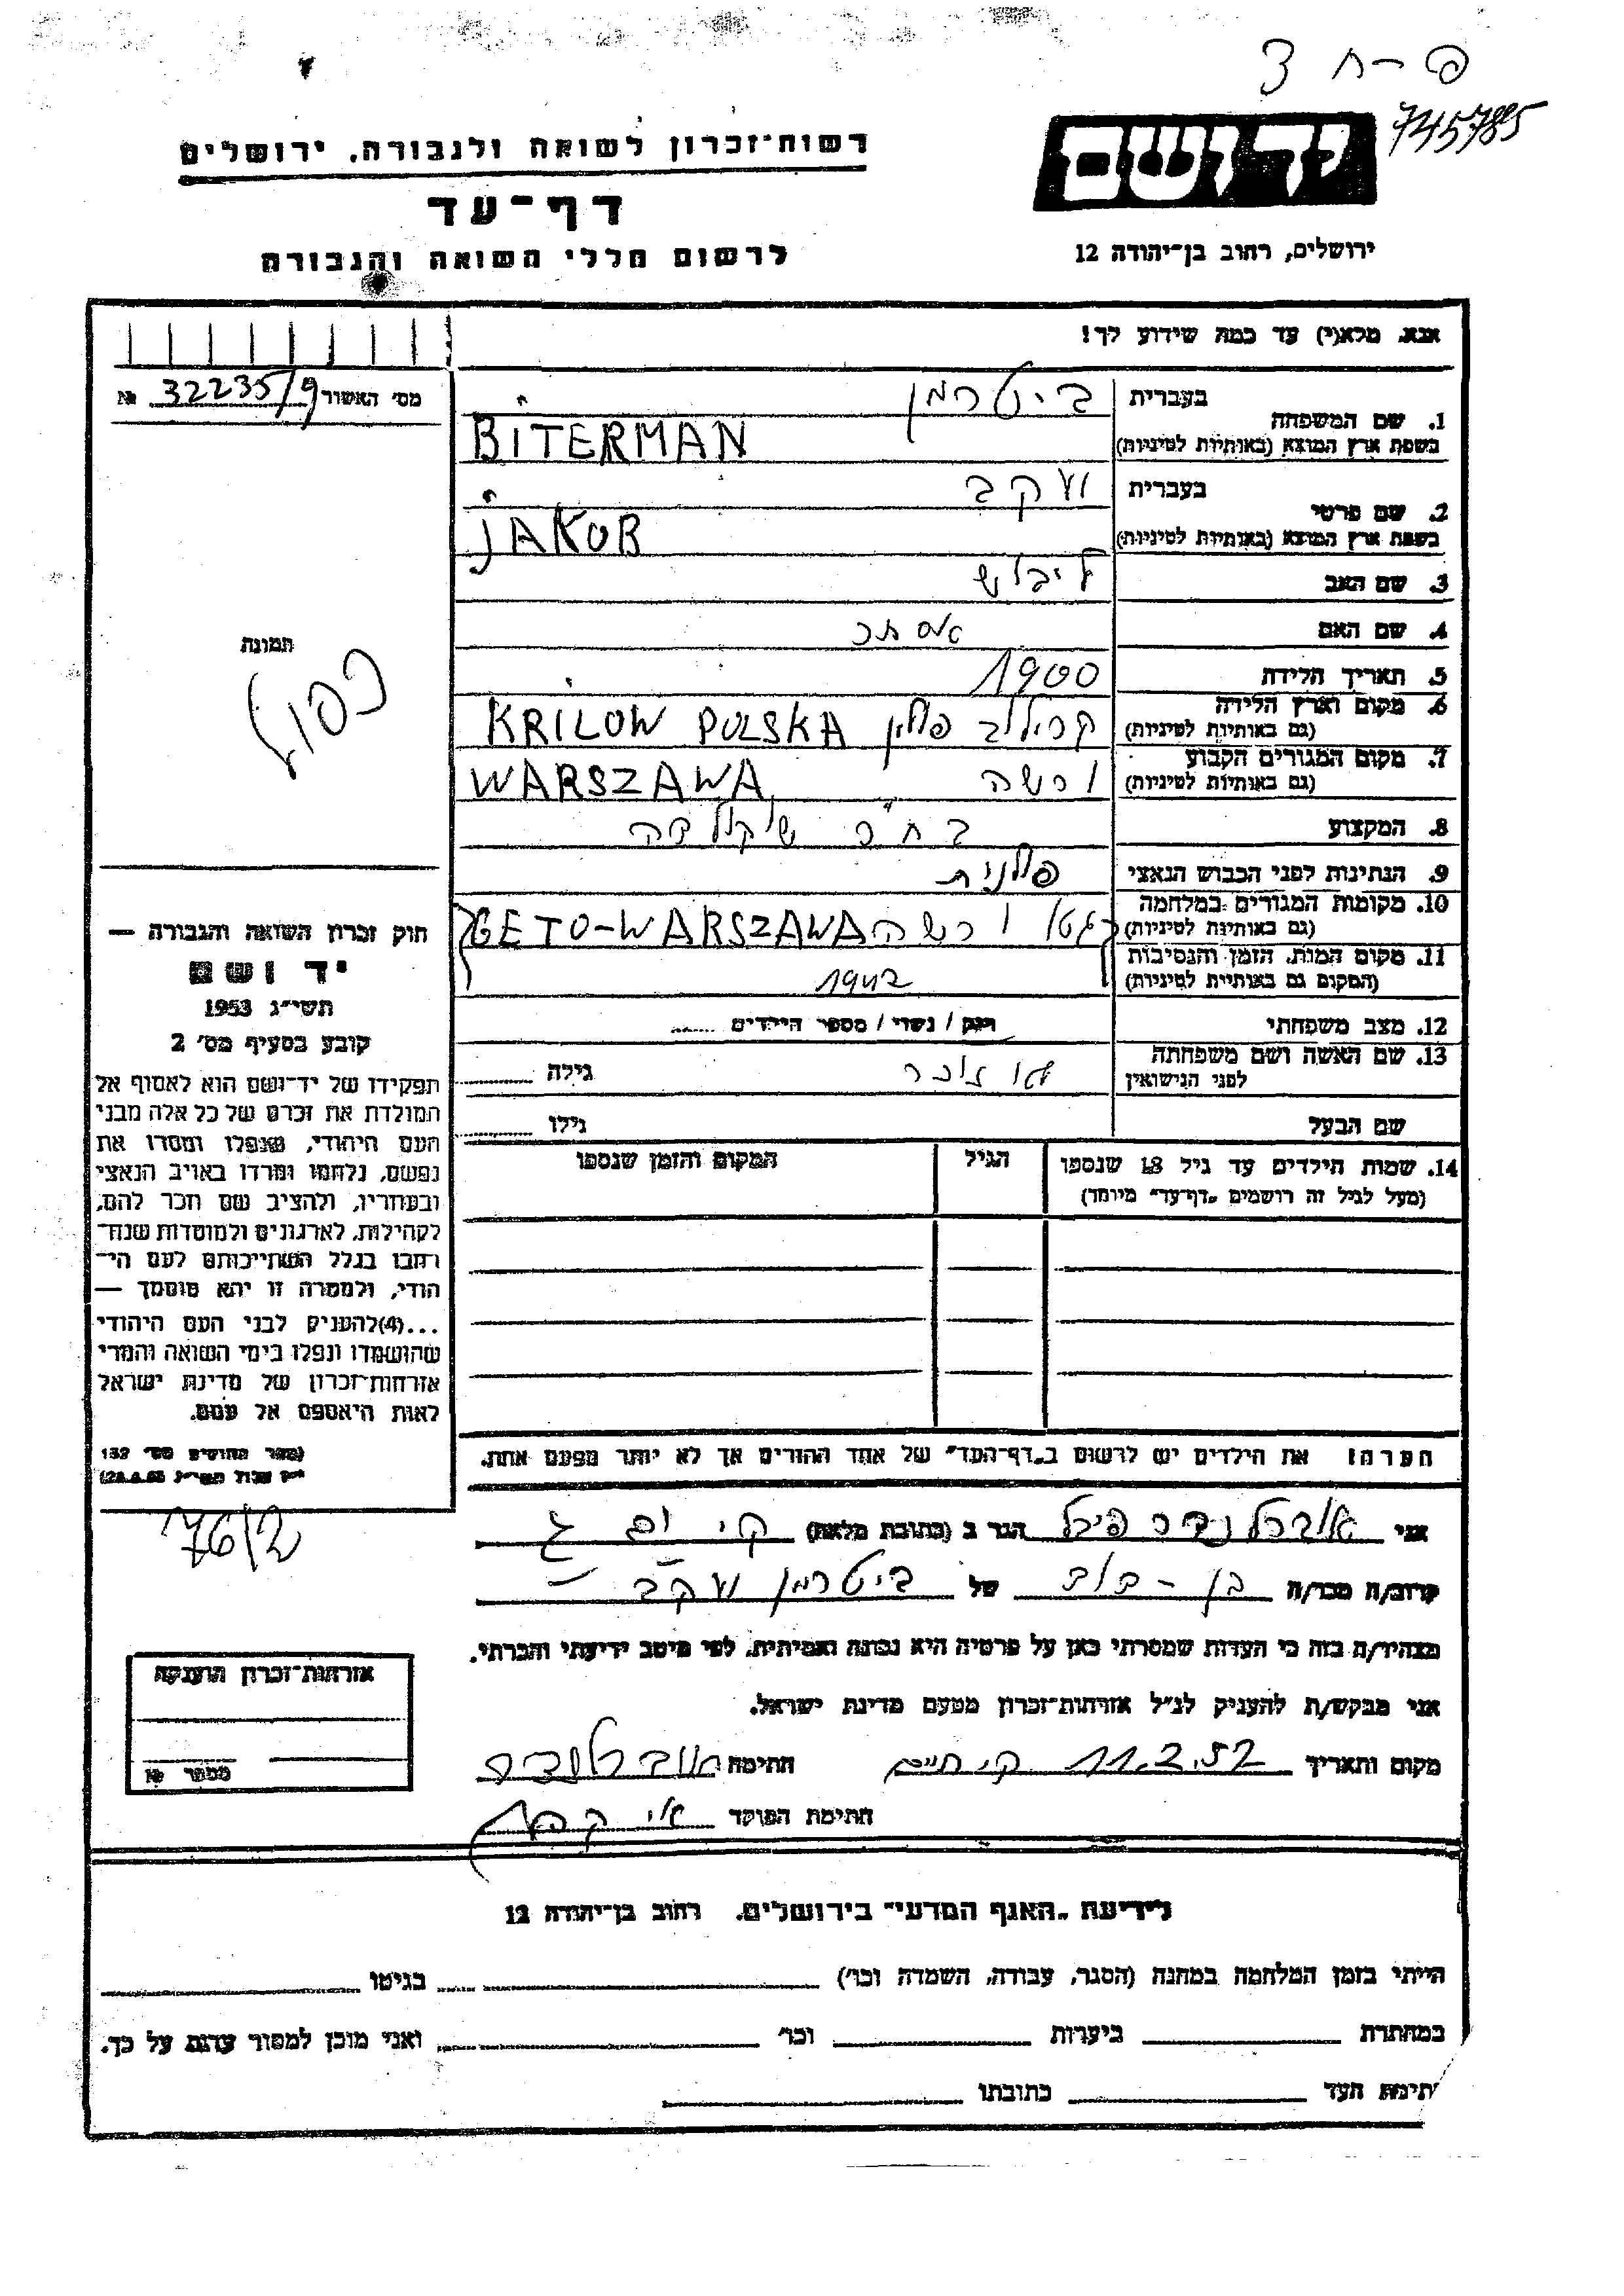 פ–ח 3
745785
יד ושם
ירושלים, רחוב בן־יהודה 12
רשות־זכרון לשואה ולגבורה, ירושלים
דף־עד
לרשום חללי השואה והגבורה
אנא, מלא(י) עד כמה שידוע לך!
מס׳ האשור 32235/9 №
1. שם המשפחה בעברית ביטרמן
בשפת ארץ המוצא (באותיות לטיניות) BITERMAN
2. שם פרטי בעברית יעקב
בשפת ארץ המוצא (באותיות לטיניות) JAKOB
3. שם האב ליבוש
4. שם האם אסתר
5. תאריך הלידה 1900
6. מקום וארץ הלידה (גם באותיות לטיניות) קרילוב פולין KRILOW POLSKA
7. מקום המגורים הקבוע (גם באותיות לטיניות) ורשה WARSZAWA
8. המקצוע בח״ר שוקולדה
9. הנתינות לפני הכבוש הנאצי פולנית
10. מקומות המגורים במלחמה (גם באותיות לטיניות) גטו ורשה GETO-WARSZAWA
11. מקום המות, הזמן והנסיבות (המקום גם באותיות לטיניות) 1942
12. מצב משפחתי רווק / נשוי / מספר הילדים
13. שם האשה ושם משפחתה לפני הנישואין גילה
שם הבעל גילו
14. שמות הילדים עד גיל 18 שנספו (מעל לגיל זה רושמים „דף־עד״ מיוחד) הגיל המקום והזמן שנספו
תמונה
כפול
חוק זכרון השואה והגבורה —
יד ושם
תשי״ג 1953
קובע בסעיף מס׳ 2
תפקידו של יד־ושם הוא לאסוף אל
המולדת את זכרם של כל אלה מבני
העם היהודי, שנפלו ומסרו את
נפשם, נלחמו ומרדו באויב הנאצי
ובעוזריו, ולהציב שם וזכר להם,
לקהילות, לארגונים ולמוסדות שנח־
רבו בגלל השתייכותם לעם הי־
הודי, ולמטרה זו יהא מוסמך —
...(4)להעניק לבני העם היהודי
שהושמדו ונפלו בימי השואה והמרי
אזרחות־זכרון של מדינת ישראל
לאות היאספם אל עמם.
(ספר החוקים מס׳ 132
76/2
הערה: את הילדים יש לרשום ב„דף־העד״ של אחד ההורים אך לא יותר מפעם אחת.
אני אוברלנדר הגר ב (כתובת מלאה) ק׳ ים
קרוב/ה מכר/ה בן - דוד של ביטרמן יעקב
מצהיר/ה בזה כי העדות שמסרתי כאן על פרטיה היא נכונה ואמיתית, לפי מיטב ידיעתי והכרתי.
אני מבקש/ת להעניק לנ״ל אזרחות־זכרון מטעם מדינת ישראל.
מקום ותאריך ק׳ חיים 11.2.57 חתימה אוברלנדר
חתימת הפוקד
אזרחות־זכרון הוענקה
מספר №
לידיעת „האגף המדעי״ בירושלים, רחוב בן־יהודה 12
הייתי בזמן המלחמה במחנה (הסגר, עבודה, השמדה וכו׳) בגיטו
במחתרת ביערות וכו׳ ואני מוכן למסור עדות על כך.
חתימת העד כתובתו